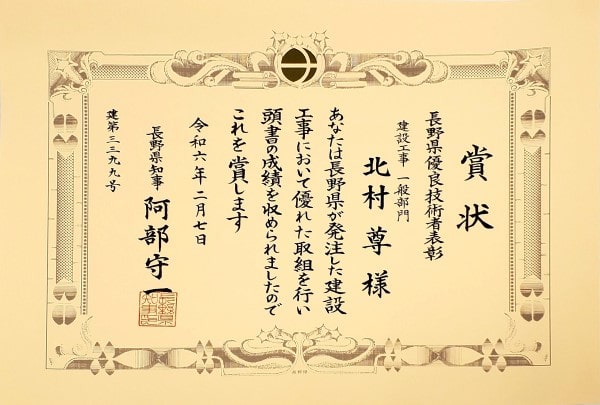 賞状
長野県優良技術者表彰
建設工事 一般部門
北村 尊 様
あなたは長野県が発注した建設
工事において優れた取組を行い
頭書の成績を収められましたので
これを賞します
令和六年二月七日
長野県知事 阿部守一
建第三三九九号